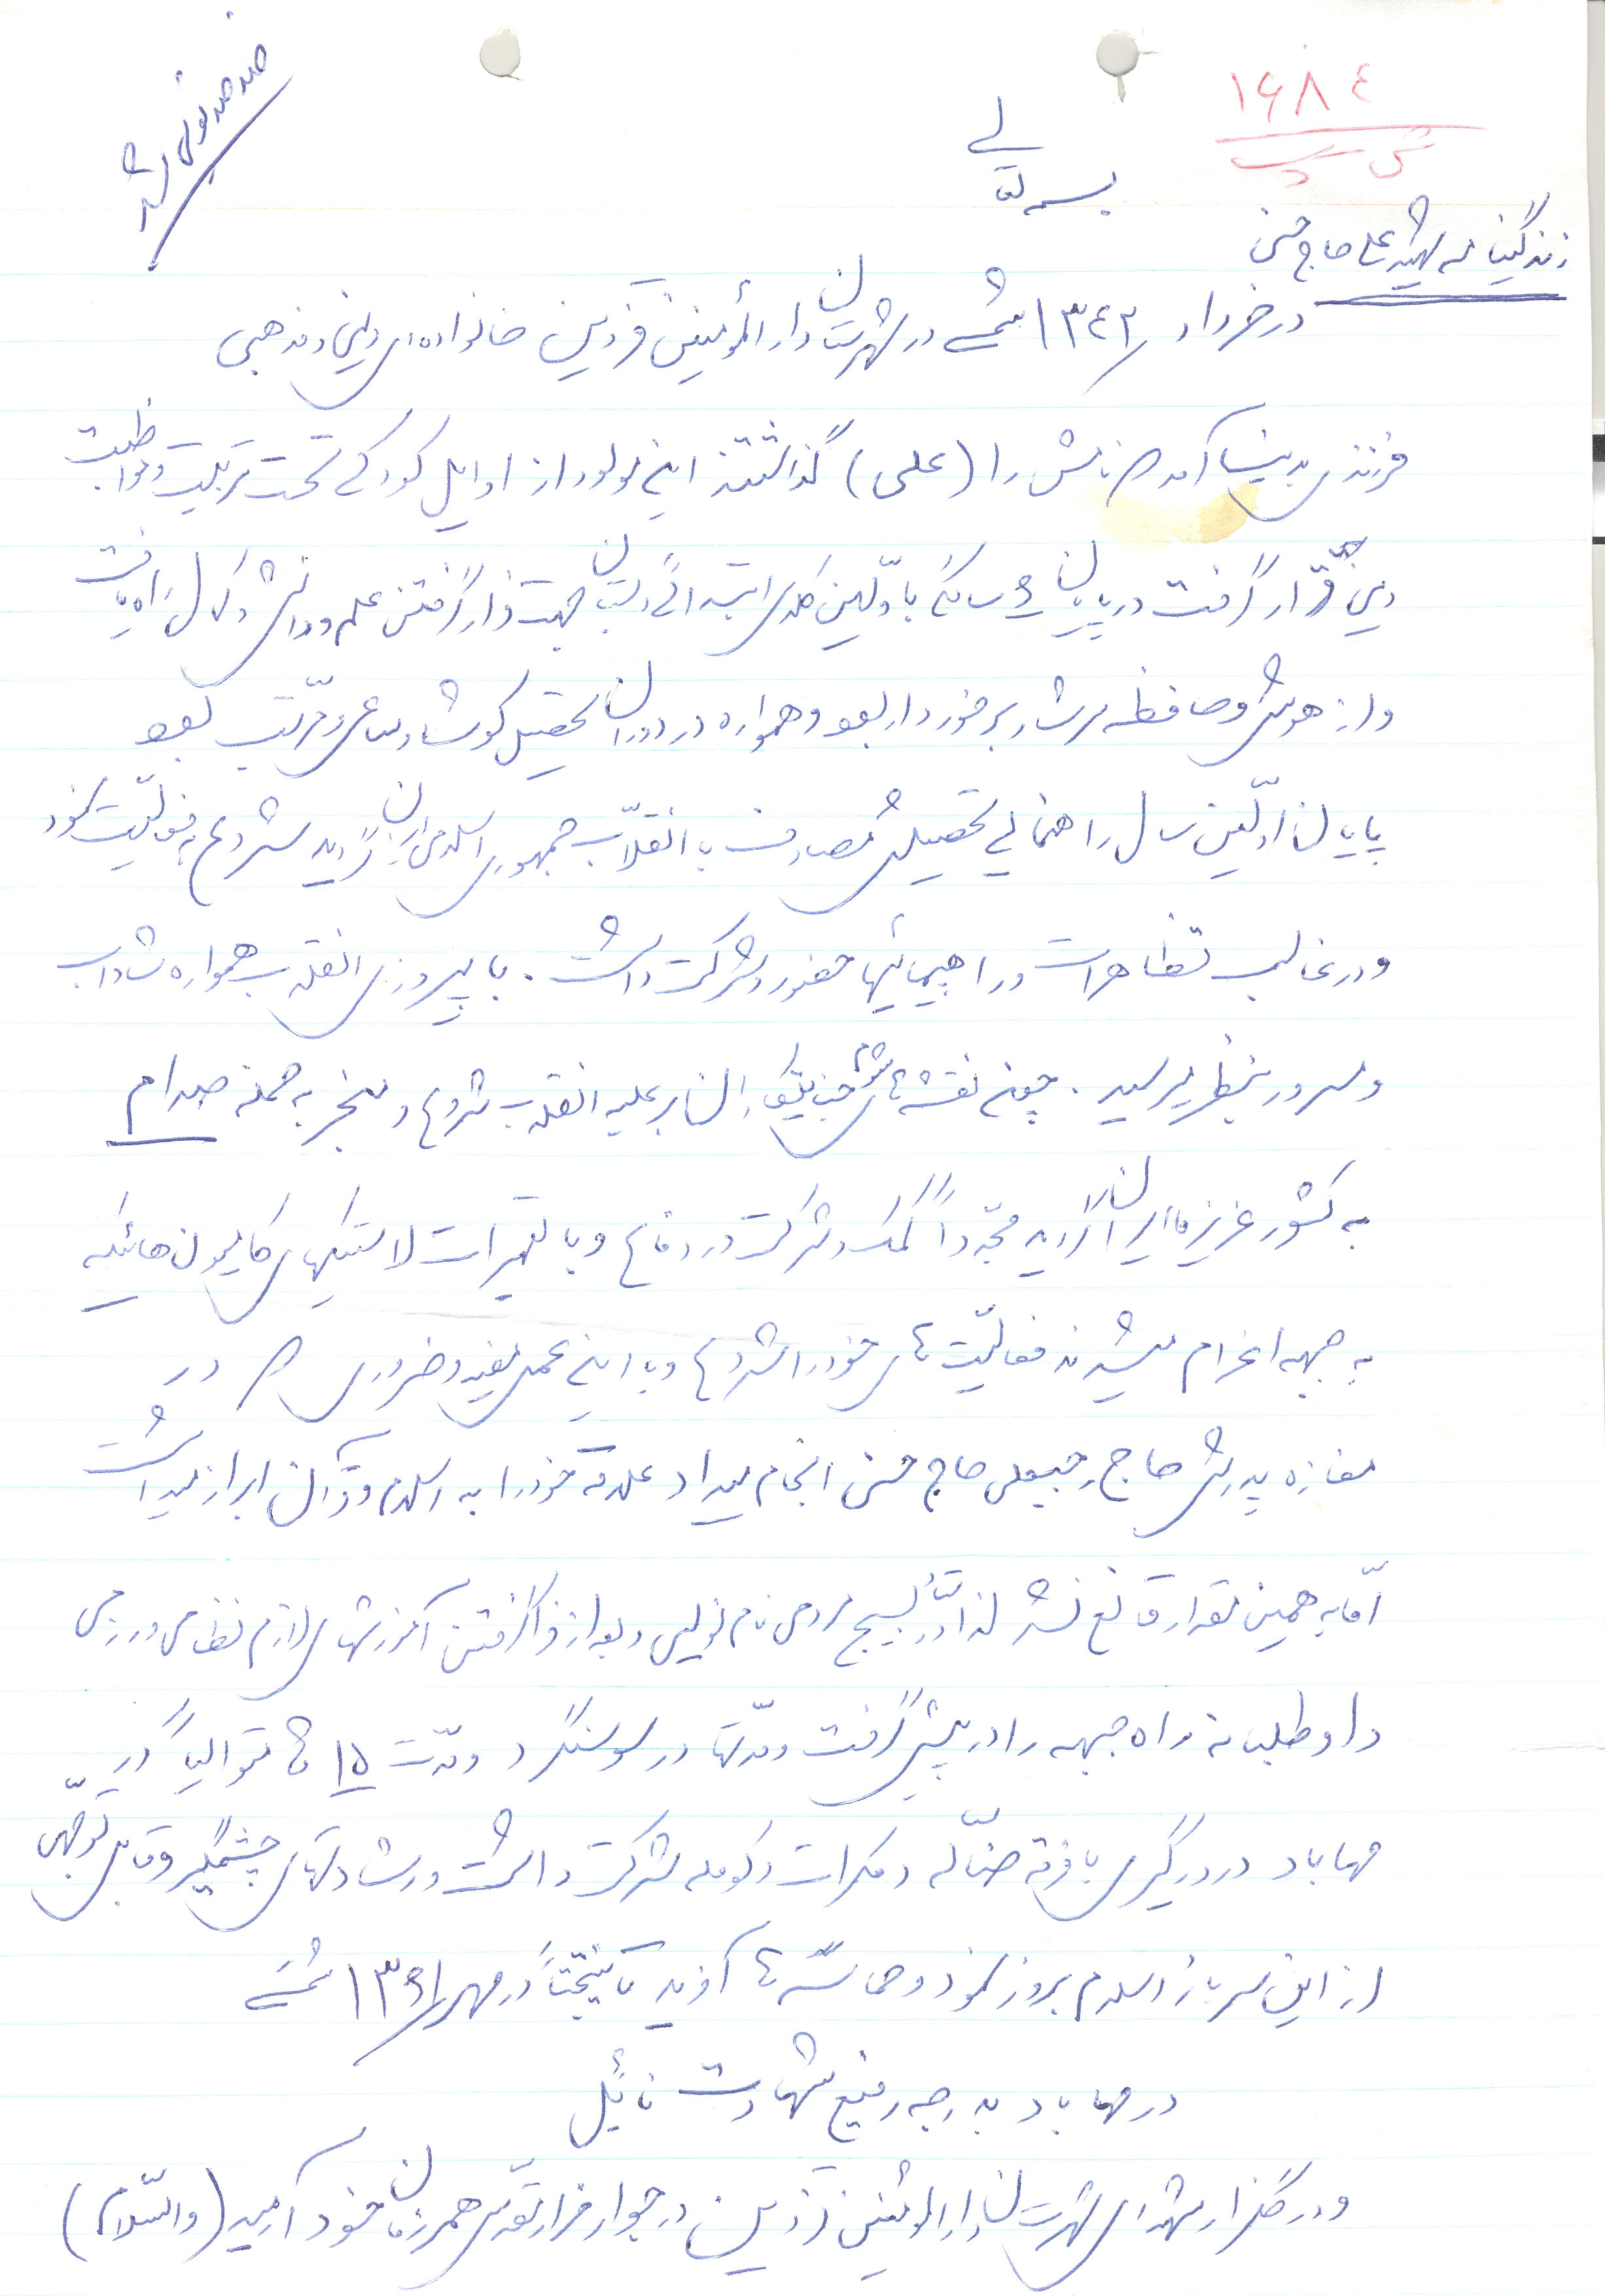 ۱۶۸۴
بسمه تعالی
زندگینامه شهید علی حاج حسنی
در خرداد ۱۳۴۲ شمسی در شهرستان دارالمؤمنین قزوین خانواده‌ای دینی و مذهبی
فرزندی بدنیا آمد که نامش را (علی) گذاشتند این مولود از اوایل کودکی تحت تربیت و مواظبت
دینی قرار گرفت در پایان ۶ سالگی با اولین کلاس ابتدائی دبستان جهت فرار گرفتن علم و دانش و کمال راه یافت
و از هوش و حافظه سرشار برخوردار بود و همواره در دوران تحصیل کوشا و ساعی و مرتب بود
پایان اولین سال راهنمائی تحصیلش مصادف با انقلاب جمهوری اسلامی ایران گردید شروع به فعالیت نمود
و در غالب تظاهرات و راهپیمائیها حضور و شرکت داشت . با پیروزی انقلاب همواره شاداب
و مسرور بنظر میرسید . چون نقشه‌های شوم جنایتکاران بر علیه انقلاب شروع و منجر به حمله صدام
به کشور عزیزمان ایران گردید مجدداً کمک و شرکت در دفاع و با تعمیرات لاستیکهای کامیون هائیکه
به جبهه اعزام میشدند فعالیت های خود را شروع و با این عمل مفید و ضروری که در
مغازه پدرش حاج رجبعلی حاج حسنی انجام میداد علاقه خود را به اسلام و قرآن ابراز میداشت
اما به همین مقدار قانع نشد لذا در بسیج مردمی نام نویسی و بعد از فراگرفتن آموزشهای لازم نظامی و رزمی
داوطلبانه راه جبهه را در پیش گرفت و مدتها در سوسنگرد و مدت ۱۵ ماه متوالیاً در
مهاباد در درگیری با فرقه ضاله دمکرات و کومله شرکت داشت و رشادتهای چشمگیر و قابل توجهی
از این سرباز اسلام بروز نمود و حماسه ها آفرید تا نتیجتاً در مهر ۱۳۶۱ شمسی
در مهاباد بدرجه رفیع شهادت نائل
و در گلزار شهدای شهرستان دارالمؤمنین قزوین در جوار مزار مقدس همرزمان خود آرمید (والسلام)